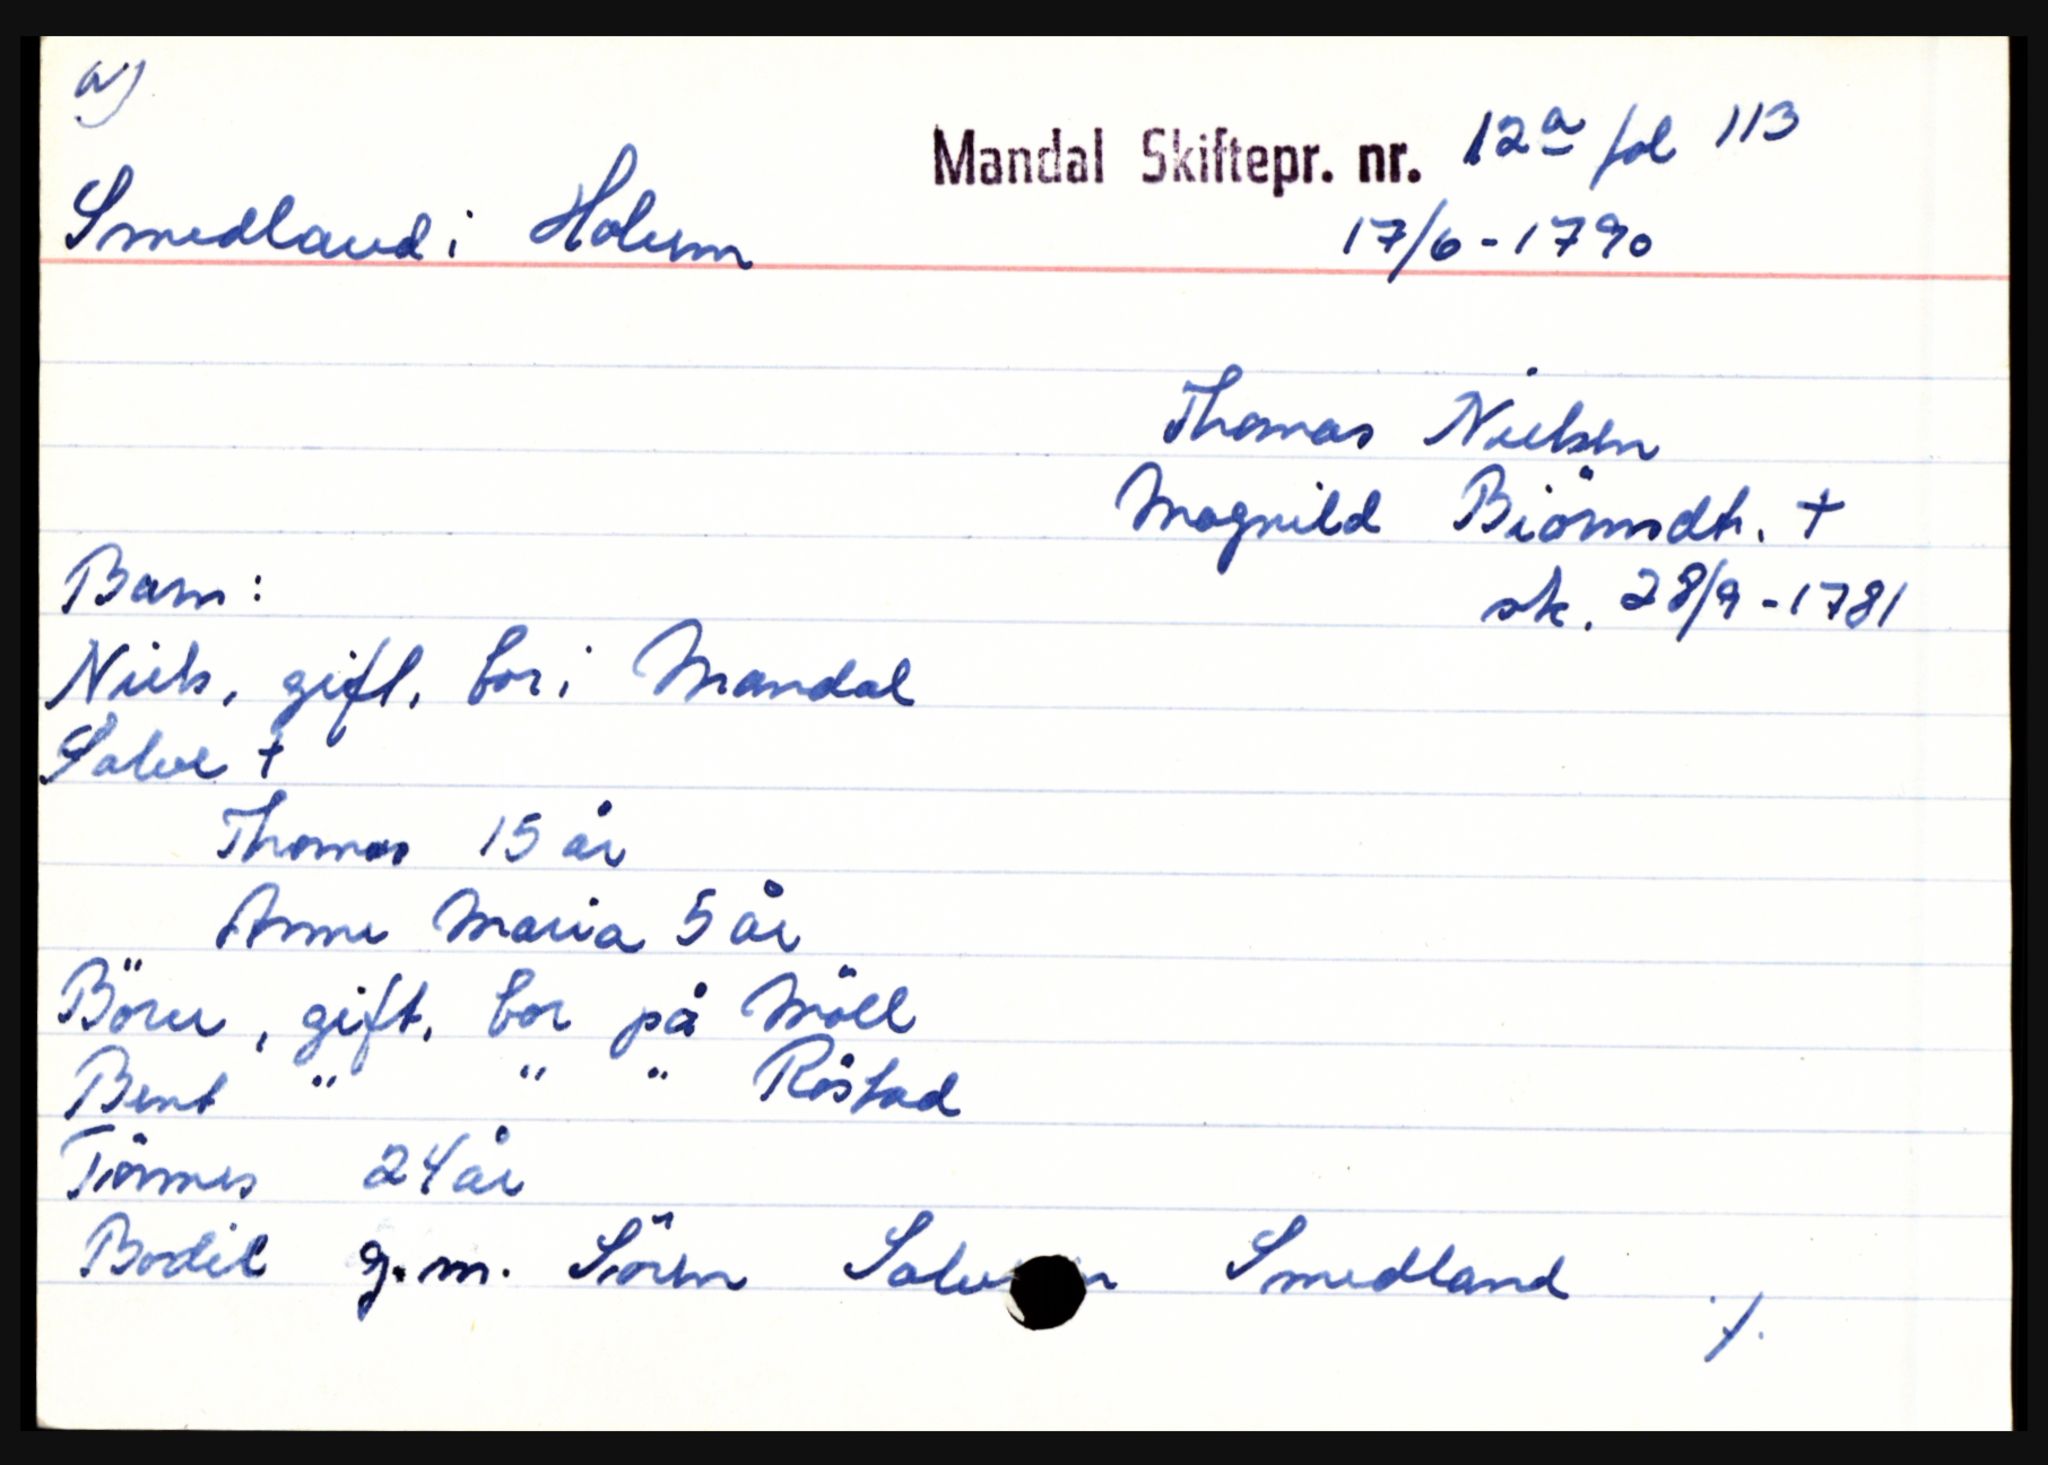 a)
Mandal Skiftepr. nr. 12a fol 113
Smedland i Holum
17/6-1790
Thomas Nielsen
Magnild Biörnsdtr. +
Barn:
sk. 28/9-1781
Niels, gift, bor i Mandal
Salve +
Thomas 15 år
Anne Maria 5 år
Börre, gift, bor på Möll
Bent " " " Röstad
Tönnes 24 år
Bodil g.m. Sören Salve n Smedland ./.